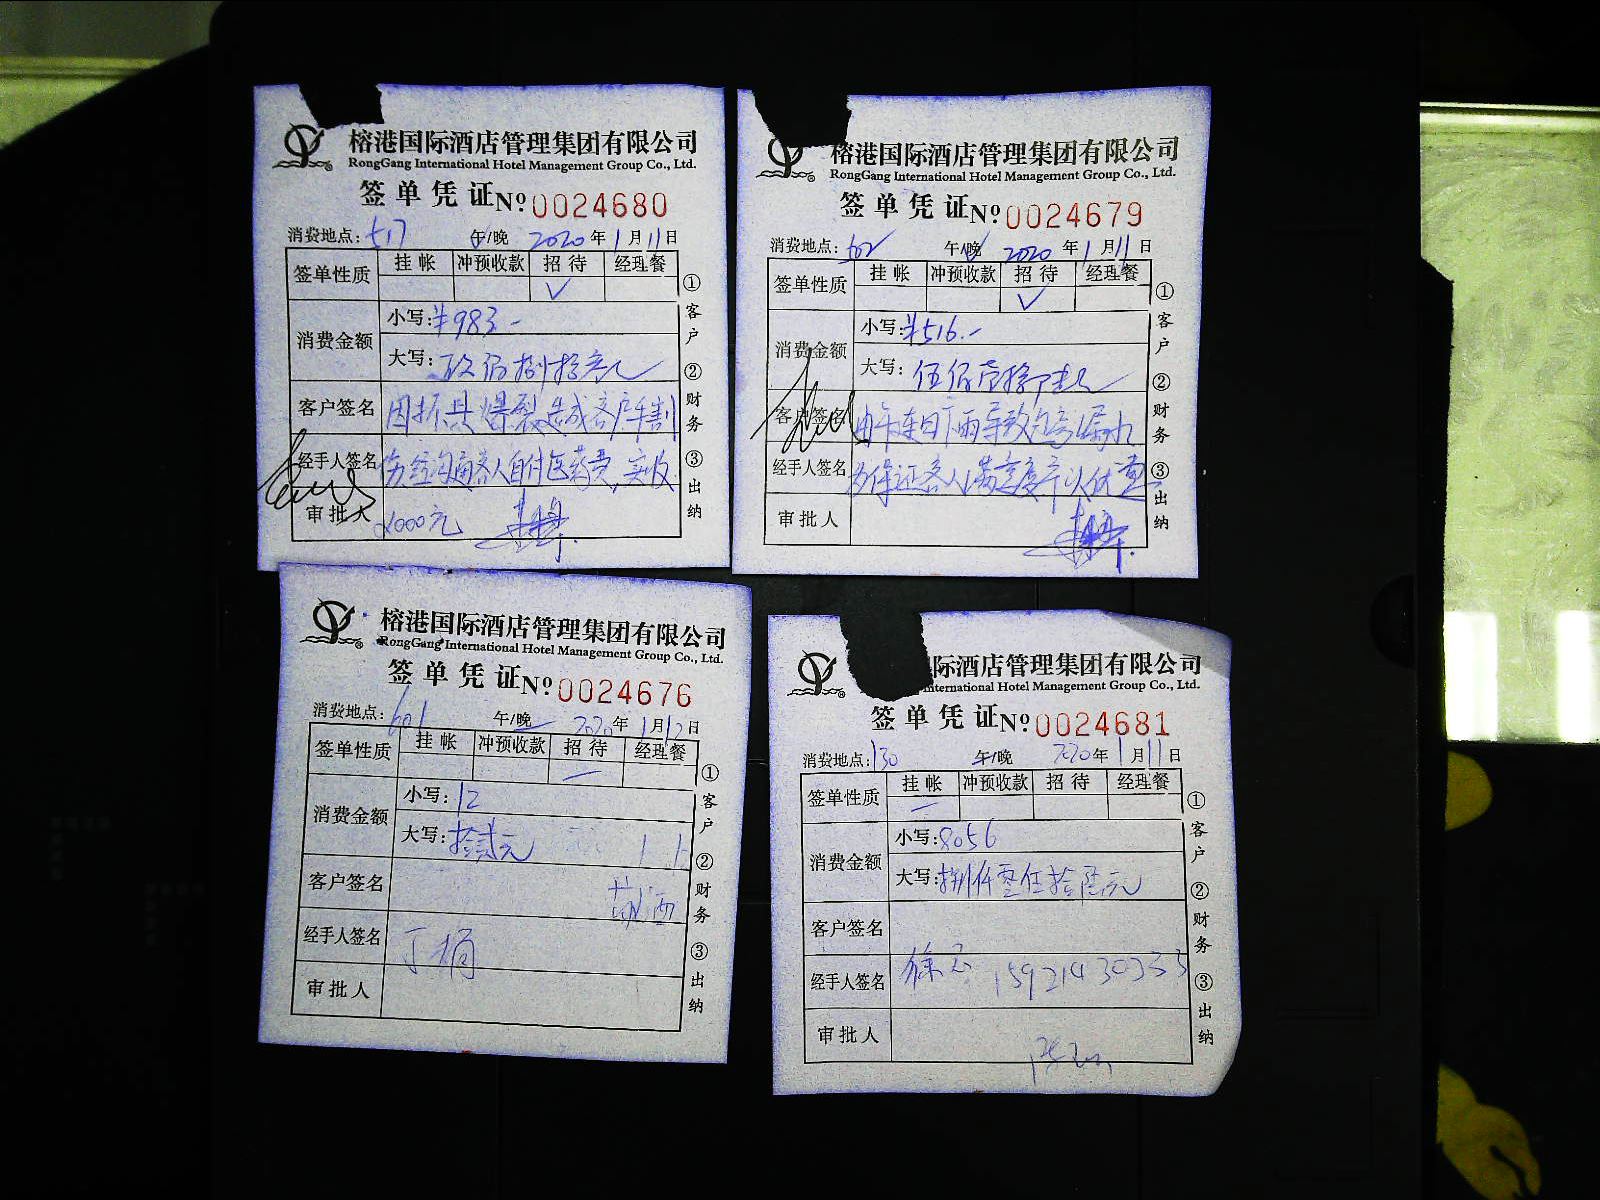 榕港国际酒店管理集团有限公司
RongGang International Hotel Management Group Co., Ltd.
签单凭证 Nº 0024680
消费地点: 517 午/晚 2020年1月11日
签单性质 挂帐 冲预收款 招待 经理餐
✓
消费金额 小写: ¥983.-
大写: 玖佰捌拾叁元
客户签名 因 爆裂造成客户手割
经手人签名 伤 经沟通客人自付医药费, 实收
审批人 2000元
①客户 ②财务 ③出纳
榕港国际酒店管理集团有限公司
RongGang International Hotel Management Group Co., Ltd.
签单凭证 Nº 0024679
消费地点: 602 午/晚 2020年1月11日
签单性质 挂帐 冲预收款 招待 经理餐
✓
消费金额 小写: ¥516.-
大写: 伍佰壹拾陆元
客户签名 由 连日下雨导致 漏水
经手人签名 为保证客人满意度予以优惠
审批人
①客户 ②财务 ③出纳
榕港国际酒店管理集团有限公司
RongGang International Hotel Management Group Co., Ltd.
签单凭证 Nº 0024676
消费地点: 601 午/晚 2020年1月12日
签单性质 挂帐 冲预收款 招待 经理餐
消费金额 小写: 12
大写: 拾贰元
客户签名
经手人签名 丁
审批人
①客户 ②财务 ③出纳
际酒店管理集团有限公司
International Hotel Management Group Co., Ltd.
签单凭证 Nº 0024681
消费地点: 130 午/晚 2020年1月11日
签单性质 挂帐 冲预收款 招待 经理餐
消费金额 小写: 8056
大写: 捌仟零伍拾陆元
客户签名
经手人签名 徐 15921430333
审批人
①客户 ②财务 ③出纳